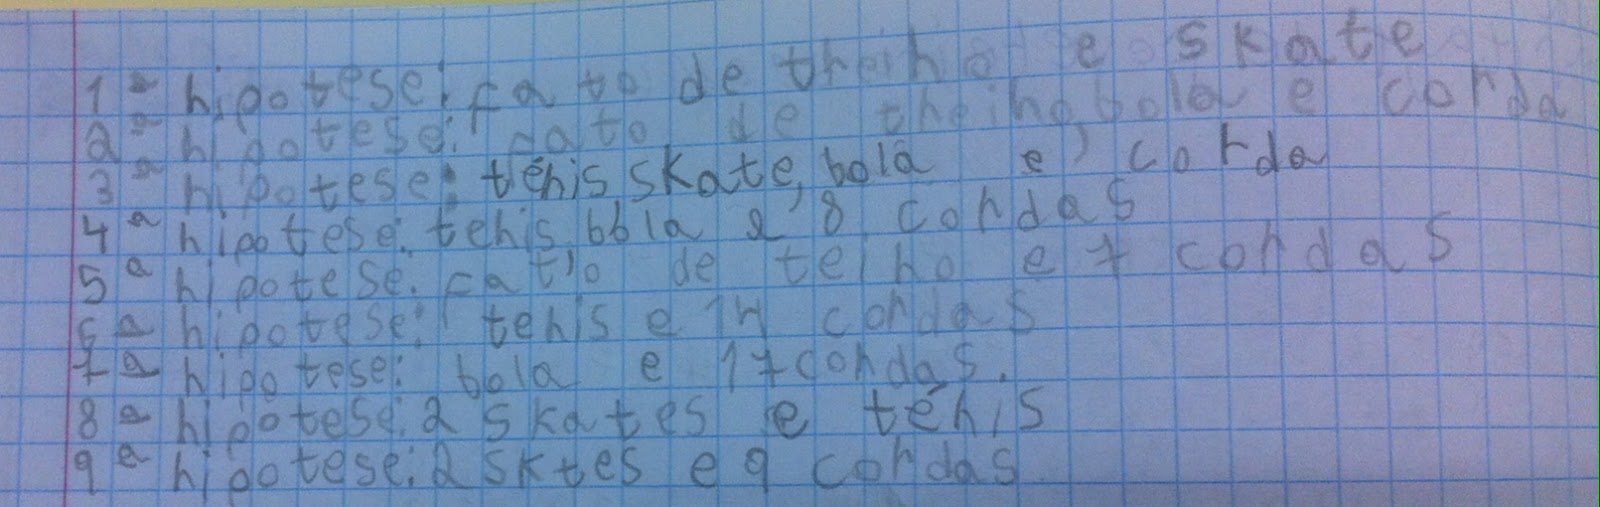 1ª hipotese: fato de theino e skate
2ª hipotese: fato de theino, bola e corda
3ª hipotese: ténis skate, bola e corda
4ª hipotese: tenis, bola e 8 cordas
5ª hipotese: fato de teino e 7 cordas
6ª hipotese: tenis e 14 cordas
7ª hipotese: bola e 17 cordas.
8ª hipotese: 2 skates e ténis
9ª hipotese: 2 sktes e 9 cordas